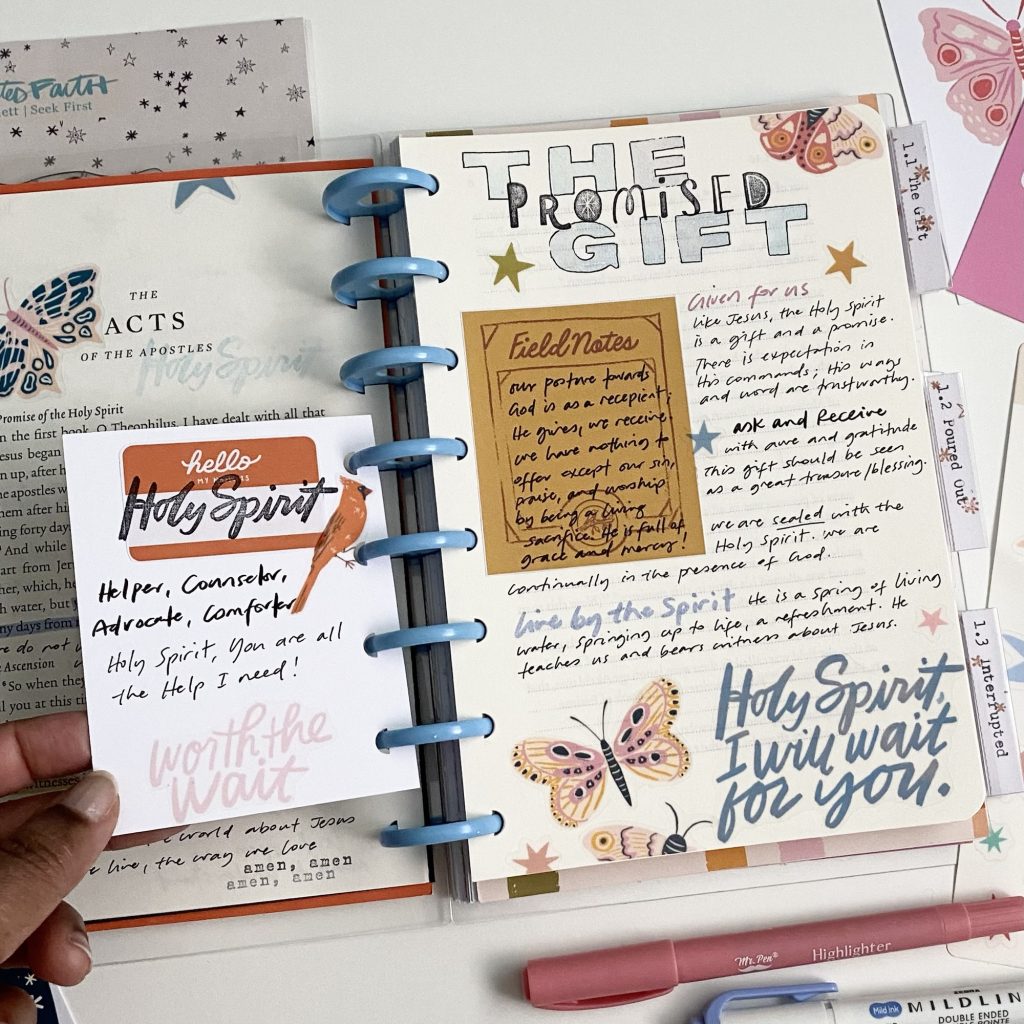 ted Faith
ett | Seek First
THE
ACTS
OF THE APOSTLES
Holy Spirit
Promise of the Holy Spirit
the first book, O Theophilus, I have dealt with all that
esus began
n up, after h
he apostles w
them after hi
ing forty days
And while
art from Jer
her, which, he
h water, but
ny days from
e do not
e Ascension
⁶So when they
ll you at this ti
witnesses
hello
MY NAME IS
Holy Spirit
Helper, Counselor,
Advocate, Comforter
Holy Spirit, You are all
the Help I need!
worth the
wait
world about Jesus
e live, the way we love
amen, amen
amen, amen
THE
PROMISED
GIFT
Field Notes
our posture towards
God is as a recepient;
He gives, we receive
we have nothing to
offer except our sin,
praise, and worship
by being a living
sacrifice. He is full of
grace and mercy!
Given for us
like Jesus, the Holy Spirit
is a gift and a promise.
There is expectation in
His commands; His ways
and word are trustworthy.
ask and Receive
with awe and gratitude
This gift should be seen
as a great treasure/blessing.
we are sealed with the
Holy Spirit. we are
continually in the presence of God.
Live by the Spirit He is a spring of living
water, springing up to life, a refreshment. He
teaches us and bears witness about Jesus.
Holy Spirit,
I will wait
for you.
1.1 The Gift
1.2 Poured Out
1.3 Interrupted
Mr. Pen® Highlighter
ZEBRA
Mild ink MILDLIN
DOUBLE ENDED